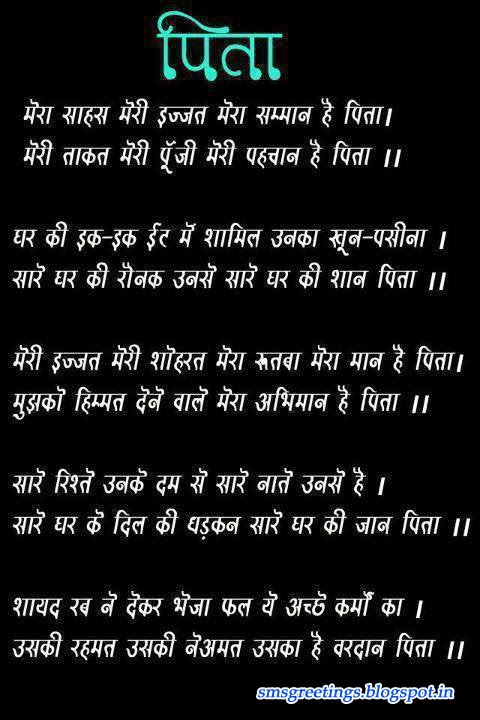 पिता
मेरा साहस मेरी इज्जत मेरा सम्मान है पिता।
मेरी ताकत मेरी पूँजी मेरी पहचान है पिता ।।
घर की इक-इक ईट में शामिल उनका खून-पसीना ।
सारे घर की रौनक उनसे सारे घर की शान पिता ।।
मेरी इज्जत मेरी शोहरत मेरा रूतबा मेरा मान है पिता।
मुझको हिम्मत देने वाले मेरा अभिमान है पिता ।।
सारे रिश्ते उनके दम से सारे नाते उनसे है ।
सारे घर के दिल की धड़कन सारे घर की जान पिता ।।
शायद रब ने देकर भेजा फल ये अच्छे कर्मों का ।
उसकी रहमत उसकी नेअमत उसका है वरदान पिता ।।
smsgreetings.blogspot.in